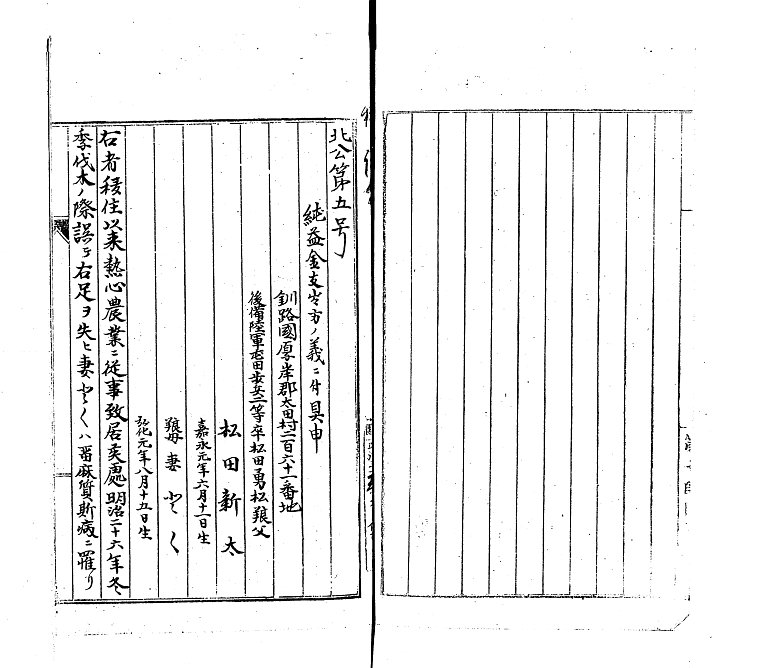 北公第五号
純益金支出方ノ義ニ付具申
釧路國厚岸郡太田村二百六十一番地
後備陸軍屯田歩兵二等卒松田勇松親父
松田新太
嘉永元年六月十一日生
親母妻とく
弘化元年八月十五日生
右者移住以来熱心農業ニ従事致居矦處明治二十六年冬
季伐木ノ際誤テ右足ヲ失ヒ妻とくハ畨麻質斯病ニ罹り